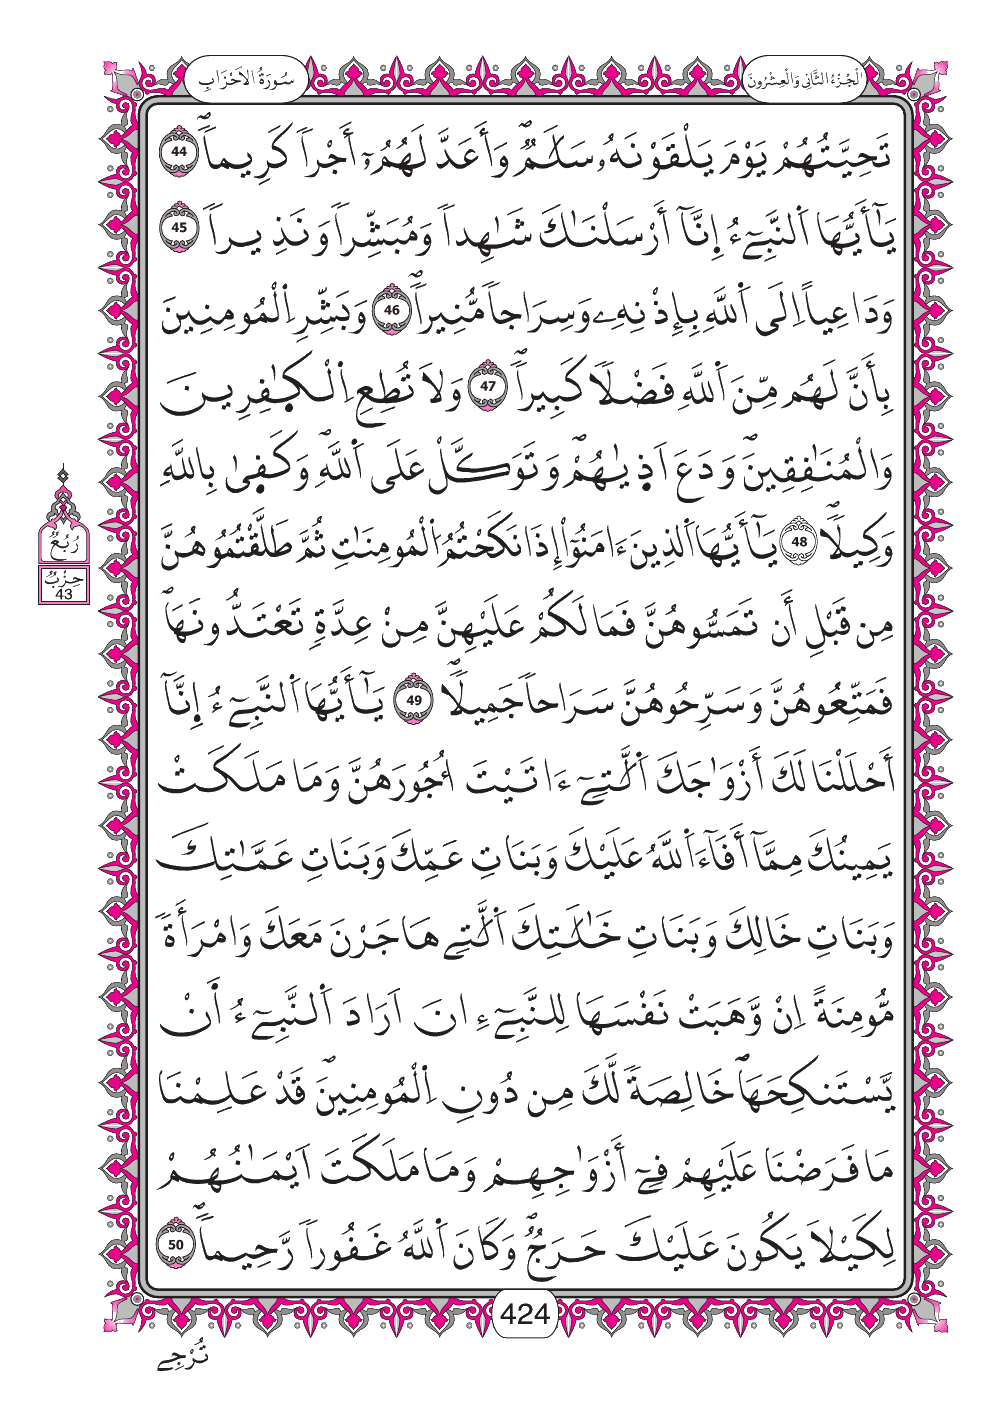 سُورَةُ الْاَحْزَابِ
الْجُزْءُ الثَّانِي وَالْعِشْرُونَ
تَحِيَّتُهُمْ يَوْمَ يَلْقَوْنَهُۥ سَلَٰمٌ وَأَعَدَّ لَهُمُۥٓ أَجْراٗ كَرِيماٗ 44
يَٰٓأَيُّهَا اَ۬لنَّبِےٓءُ اِنَّآ أَرْسَلْنَٰكَ شَٰهِداٗ وَمُبَشِّراٗ وَنَذِيراٗ 45
وَدَاعِياً اِلَى اَ۬للَّهِ بِإِذْنِهِۦ وَسِرَاجاٗ مُّنِيراٗ 46 وَبَشِّرِ اِ۬لْمُومِنِينَ
بِأَنَّ لَهُم مِّنَ اَ۬للَّهِ فَضْلاٗ كَبِيراٗ 47 وَلَا تُطِعِ اِ۬لْكٰ۪فِرِينَ
وَالْمُنَٰفِقِينَ وَدَعَ اَذ۪يٰهُمْ وَتَوَكَّلْ عَلَى اَ۬للَّهِ وَكَف۪يٰ بِاللَّهِ
وَكِيلاٗ 48 يَٰٓأَيُّهَا اَ۬لذِينَ ءَامَنُوٓاْ إِذَا نَكَحْتُمُ اُ۬لْمُومِنَٰتِ ثُمَّ طَلَّقْتُمُوهُنَّ
مِن قَبْلِ أَن تَمَسُّوهُنَّ فَمَا لَكُمْ عَلَيْهِنَّ مِنْ عِدَّةٖ تَعْتَدُّونَهَا
فَمَتِّعُوهُنَّ وَسَرِّحُوهُنَّ سَرَاحاٗ جَمِيلاٗ 49 يَٰٓأَيُّهَا اَ۬لنَّبِےٓءُ اِنَّآ
أَحْلَلْنَا لَكَ أَزْوَٰجَكَ اَ۬لَّٰتِےٓ ءَاتَيْتَ أُجُورَهُنَّ وَمَا مَلَكَتْ
يَمِينُكَ مِمَّآ أَفَآءَ اَ۬للَّهُ عَلَيْكَ وَبَنَاتِ عَمِّكَ وَبَنَاتِ عَمَّٰتِكَ
وَبَنَاتِ خَالِكَ وَبَنَاتِ خَٰلَٰتِكَ اَ۬لَّٰتِے هَاجَرْنَ مَعَكَ وَامْرَأَةٗ
مُّومِنَةً اِنْ وَّهَبَتْ نَفْسَهَا لِلنَّبِےٓءِ انَ اَرَادَ اَ۬لنَّبِےٓءُ أَنْ
يَّسْتَنكِحَهَا خَالِصَةٗ لَّكَ مِن دُونِ اِ۬لْمُومِنِينَ قَدْ عَلِمْنَا
مَا فَرَضْنَا عَلَيْهِمْ فِےٓ أَزْوَٰجِهِمْ وَمَا مَلَكَتَ اَيْمَٰنُهُمْ
لِكَيْلَا يَكُونَ عَلَيْكَ حَرَجٌ وَكَانَ اَ۬للَّهُ غَفُوراٗ رَّحِيماٗ 50
رُبُعُ
حِزْبٌ
43
424
تُرْجِے